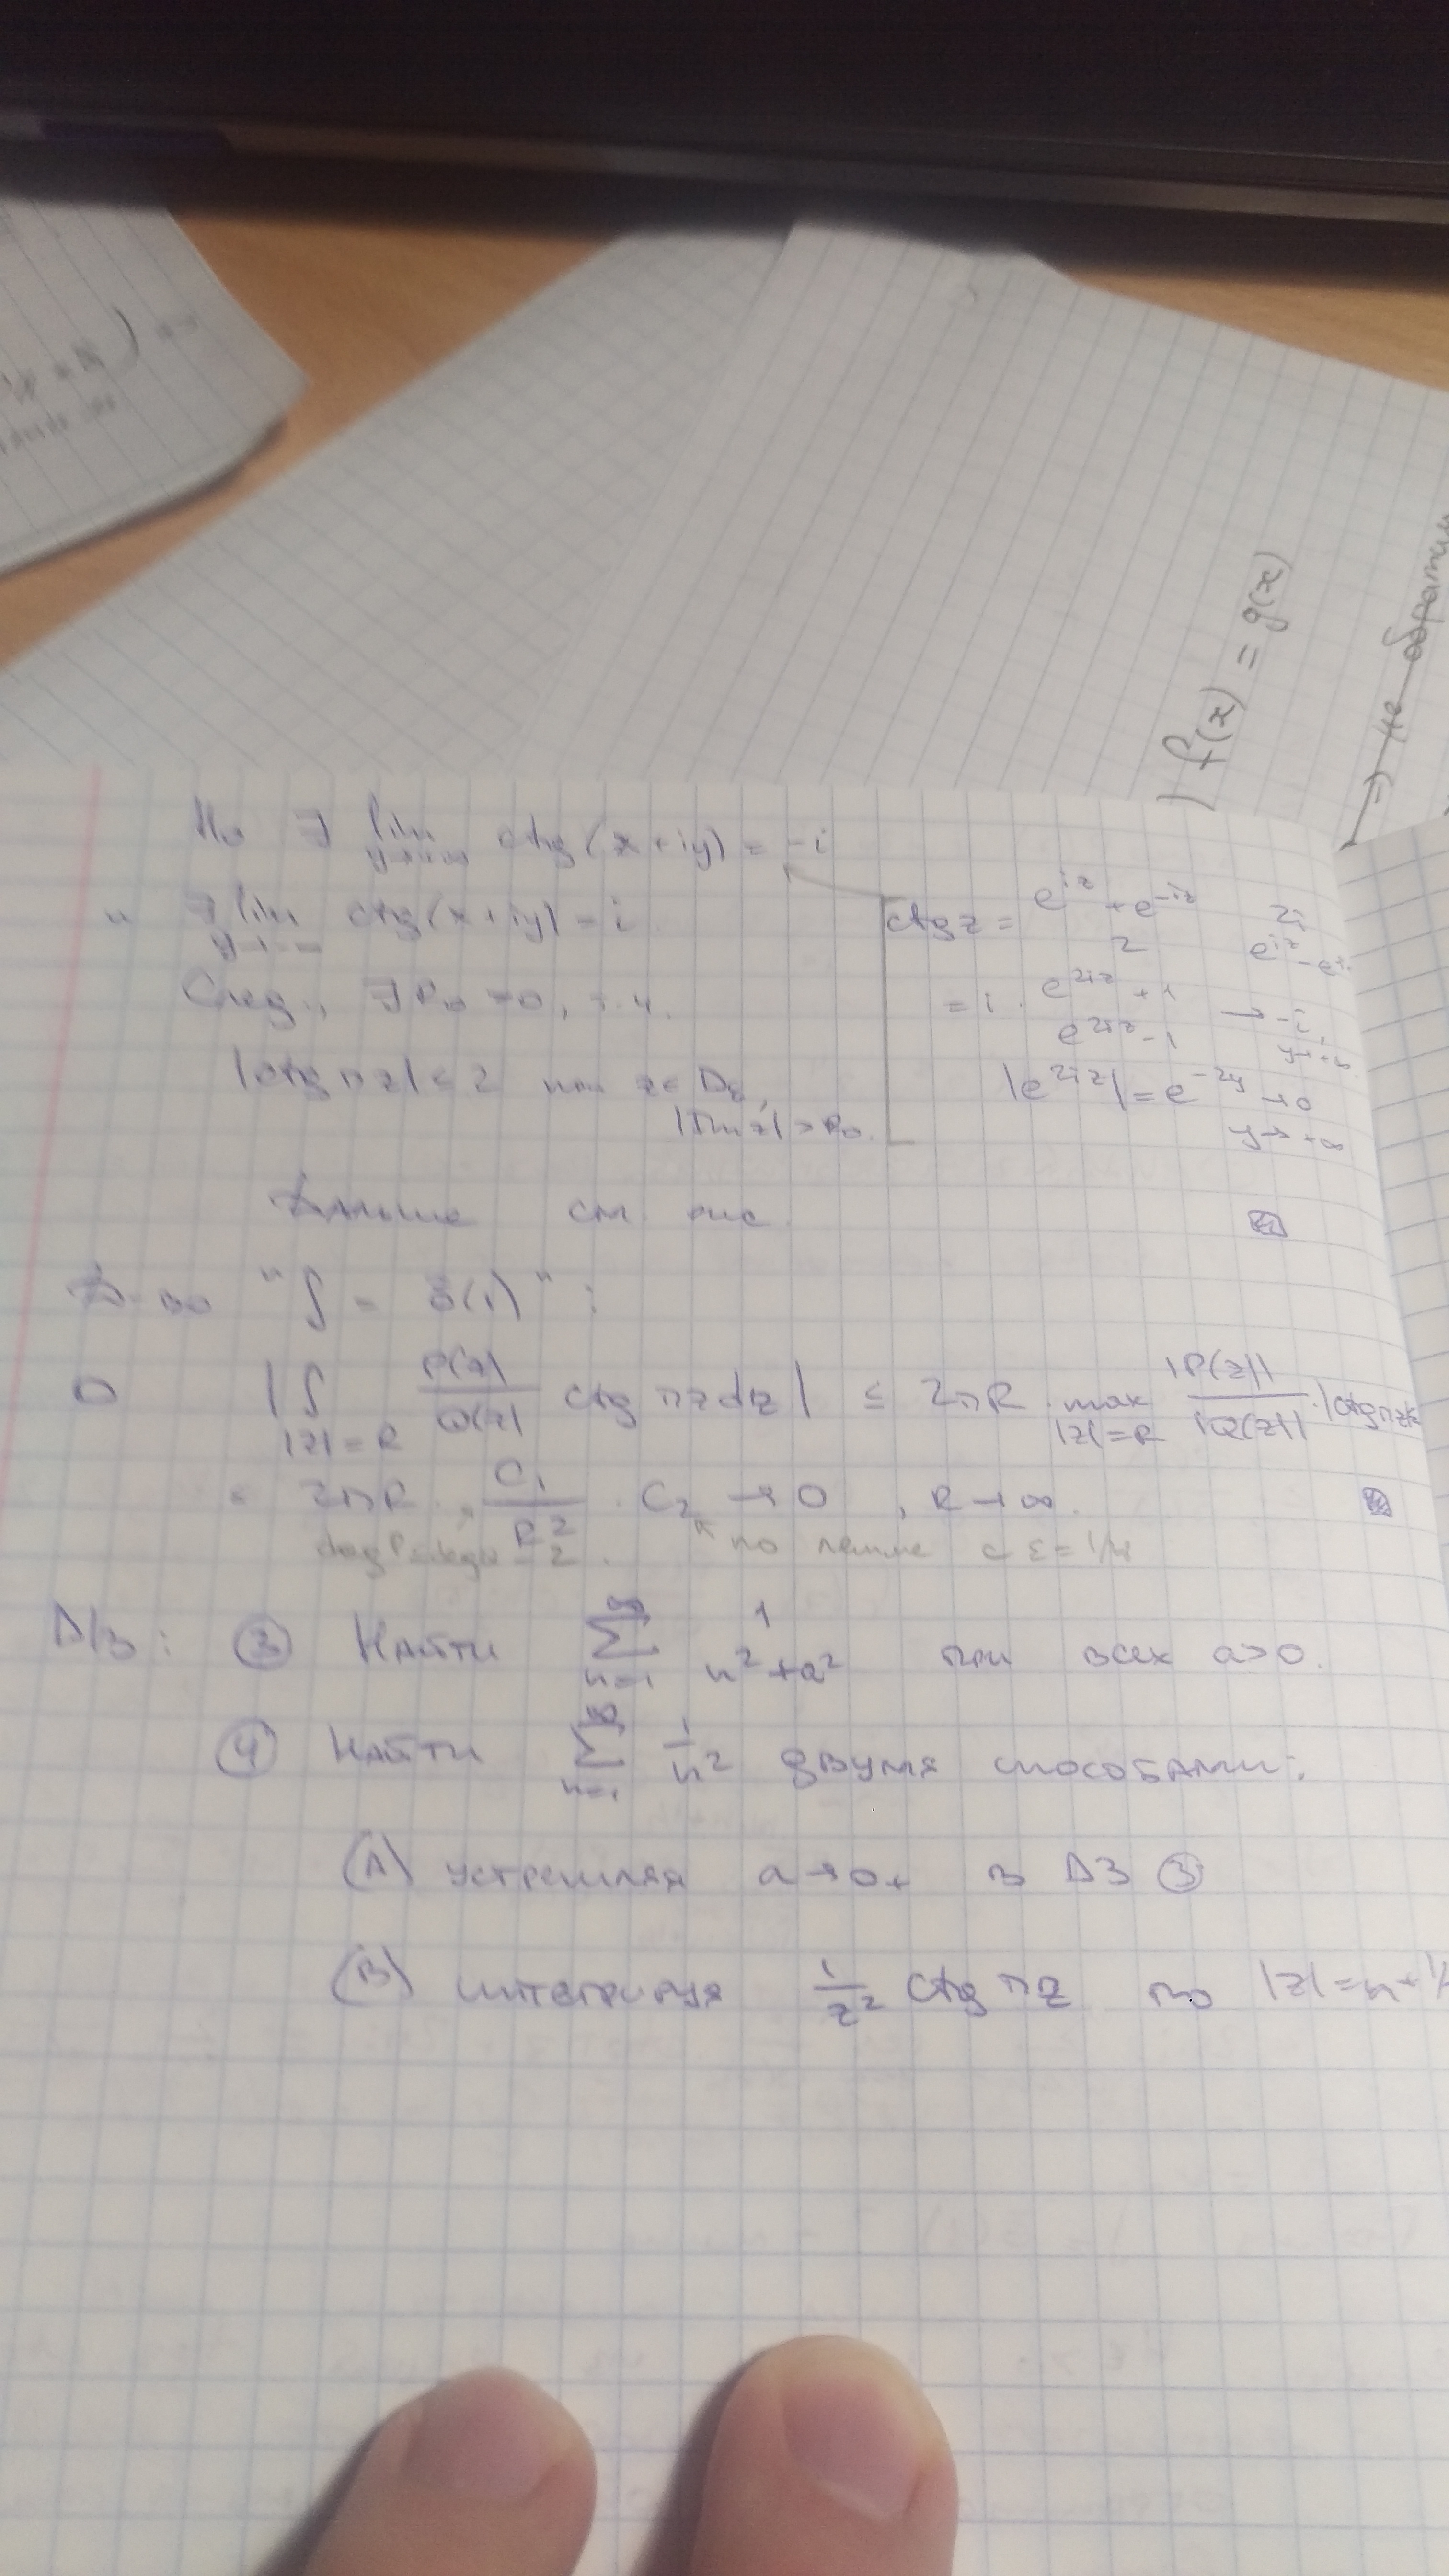 Но ∃ lim ctg(x+iy) = -i
y→+∞
и ∃ lim ctg(x+iy) = i
y→-∞
След., ∃ R₀ >0, т.ч.
|ctg πz| ≤ 2 при z ∈ D_ε,
|Im z| > R₀.
ctg z = (e^{iz} + e^{-iz})/2 · 2i/(e^{iz} - e^{-iz})
= i · (e^{2iz} + 1)/(e^{2iz} - 1) → -i,
y→+∞
|e^{2iz}| = e^{-2y} → 0
y→+∞
Дальше см. рис.
Д-во "∫ = ō(1)":
|∫_{|z|=R} P(z)/Q(z) ctg πz dz| ≤ 2πR · max_{|z|=R} |P(z)|/|Q(z)| · |ctg πz| ≤
2πR · C₁/R² · C₂ → 0, R→∞.
deg P ≤ deg Q - 2. по лемме с ε = 1/4
Д/з: ③ Найти ∑_{n=1}^{∞} 1/(n²+a²) при всех a>0.
④ Найти ∑_{n=1}^{∞} 1/n² двумя способами:
(А) устремляя a→0+ в ДЗ ③
(В) интегрируя 1/z² ctg πz по |z|=n+1/
f(x) = g(x)
⇒ не